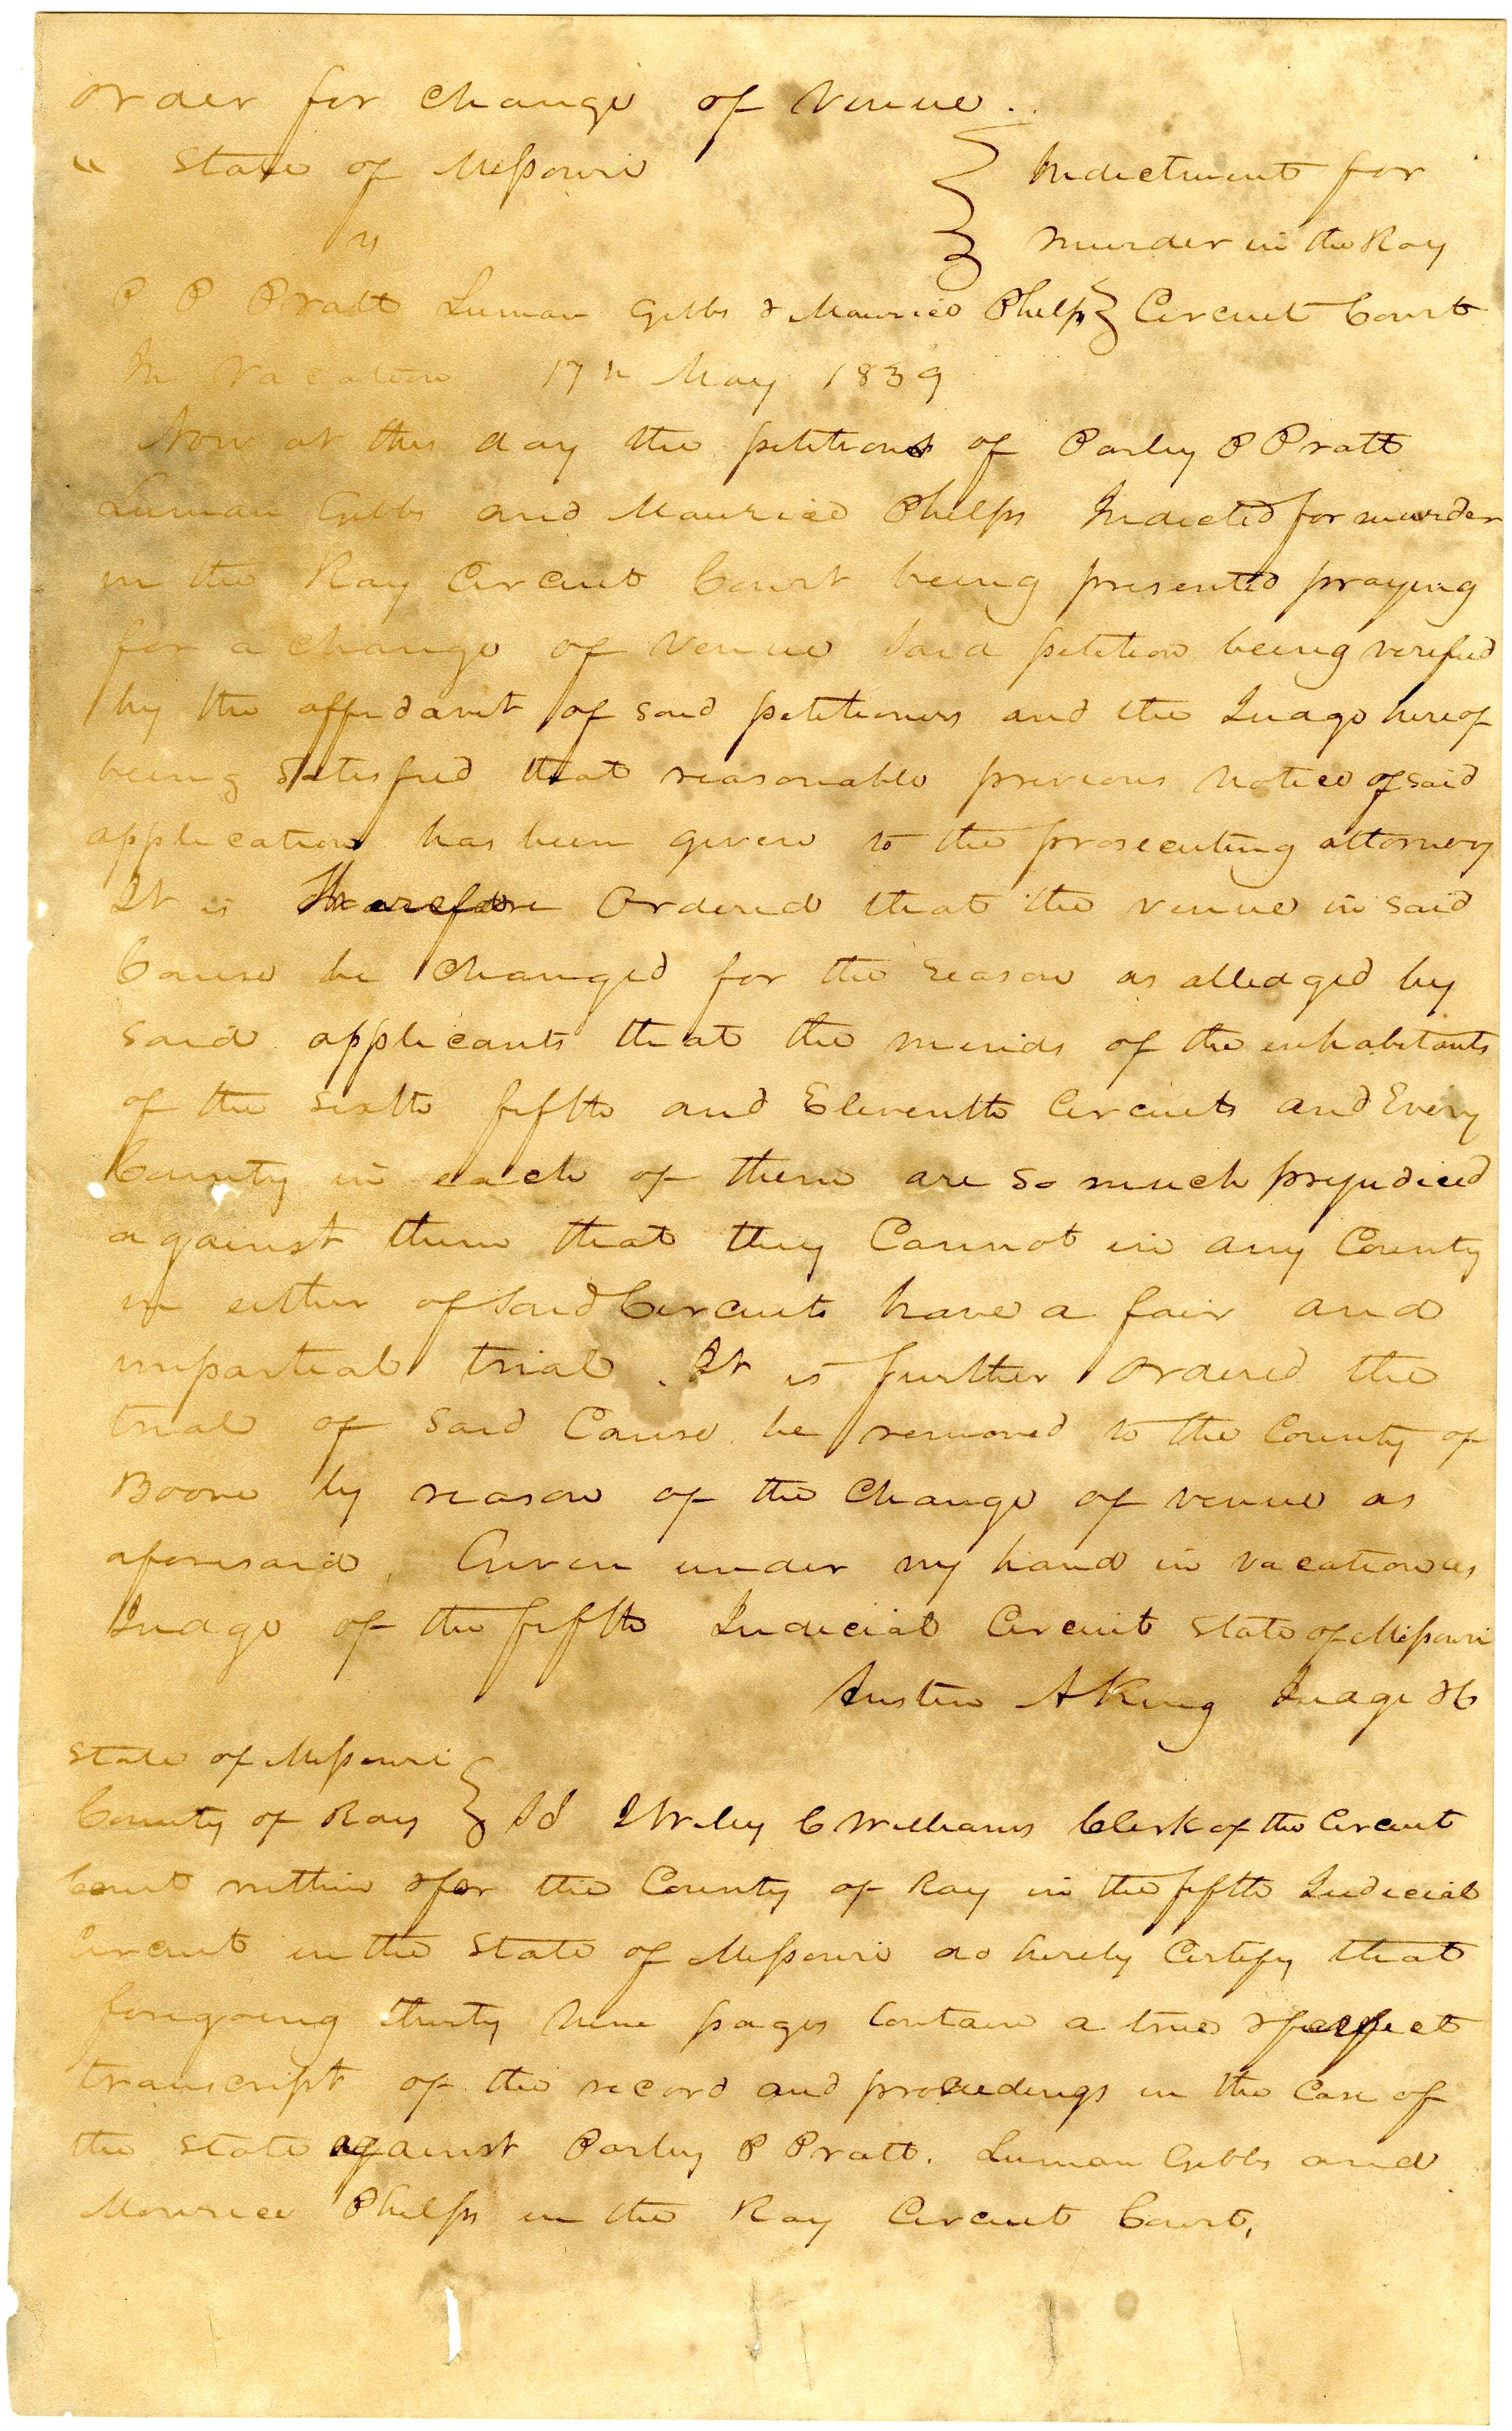 order for change of Venue.
" State of Missouri } Indictment for
vs } murder in the Ray
P P Pratt Luman Gibbs & Maurice Phelps } Circuit Court
In Vacation 17th May 1839
Now at this day the petitions of Parley P Pratt
Luman Gibbs and Maurice Phelps Indicted for murder
in the Ray Circuit Court being presented praying
for a change of venue said petition being verified
by the affidavit of said petitioners and the Judge hereof
being satisfied that reasonable previous notice of said
application has been given to the prosecuting attorney
It is Therefore Ordered that the venue in said
Cause be changed for the reason as alledged by
said applicants that the minds of the inhabitants
of the sixth fifth and Eleventh Circuits and Every
County in each of them are so much prejudiced
against them that they Cannot in any County
in either of said Circuits have a fair and
impartial trial. It is further ordered the
trial of said Cause be removed to the County of
Boone by reason of the Change of venue as
aforesaid, Given under my hand in vacation as
Judge of the fifth Judicial Circuit State of Missouri
Austin A King Judge &C
State of Missouri }
County of Ray } Sd I Wiley C Williams Clerk of the Circuit
Court within & for the County of Ray in the fifth Judicial
Circuit in the State of Missouri do hereby Certify that
foregoing thirty nine pages Contain a true & perfect
transcript of the record and proceedings in the Case of
the State against Parley P Pratt. Luman Gibbs and
Mourice Phelps in the Ray Circuit Court,